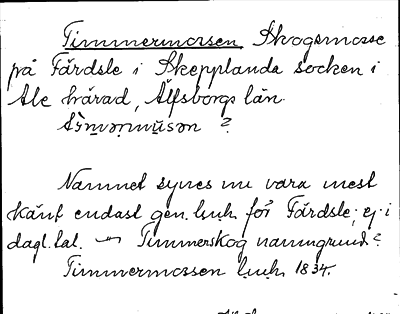 Timmermossen Skogsmosse
på Färdsle i Skepplanda socken i
Ale härad, Älfsborgs län.
?
Namnet synes nu vara mest
känt endast gen. l.u.h. för Färdsle; ej i
dagl. tal. — Timmerskog namngrund?
Timmermossen l.u.h. 1834.